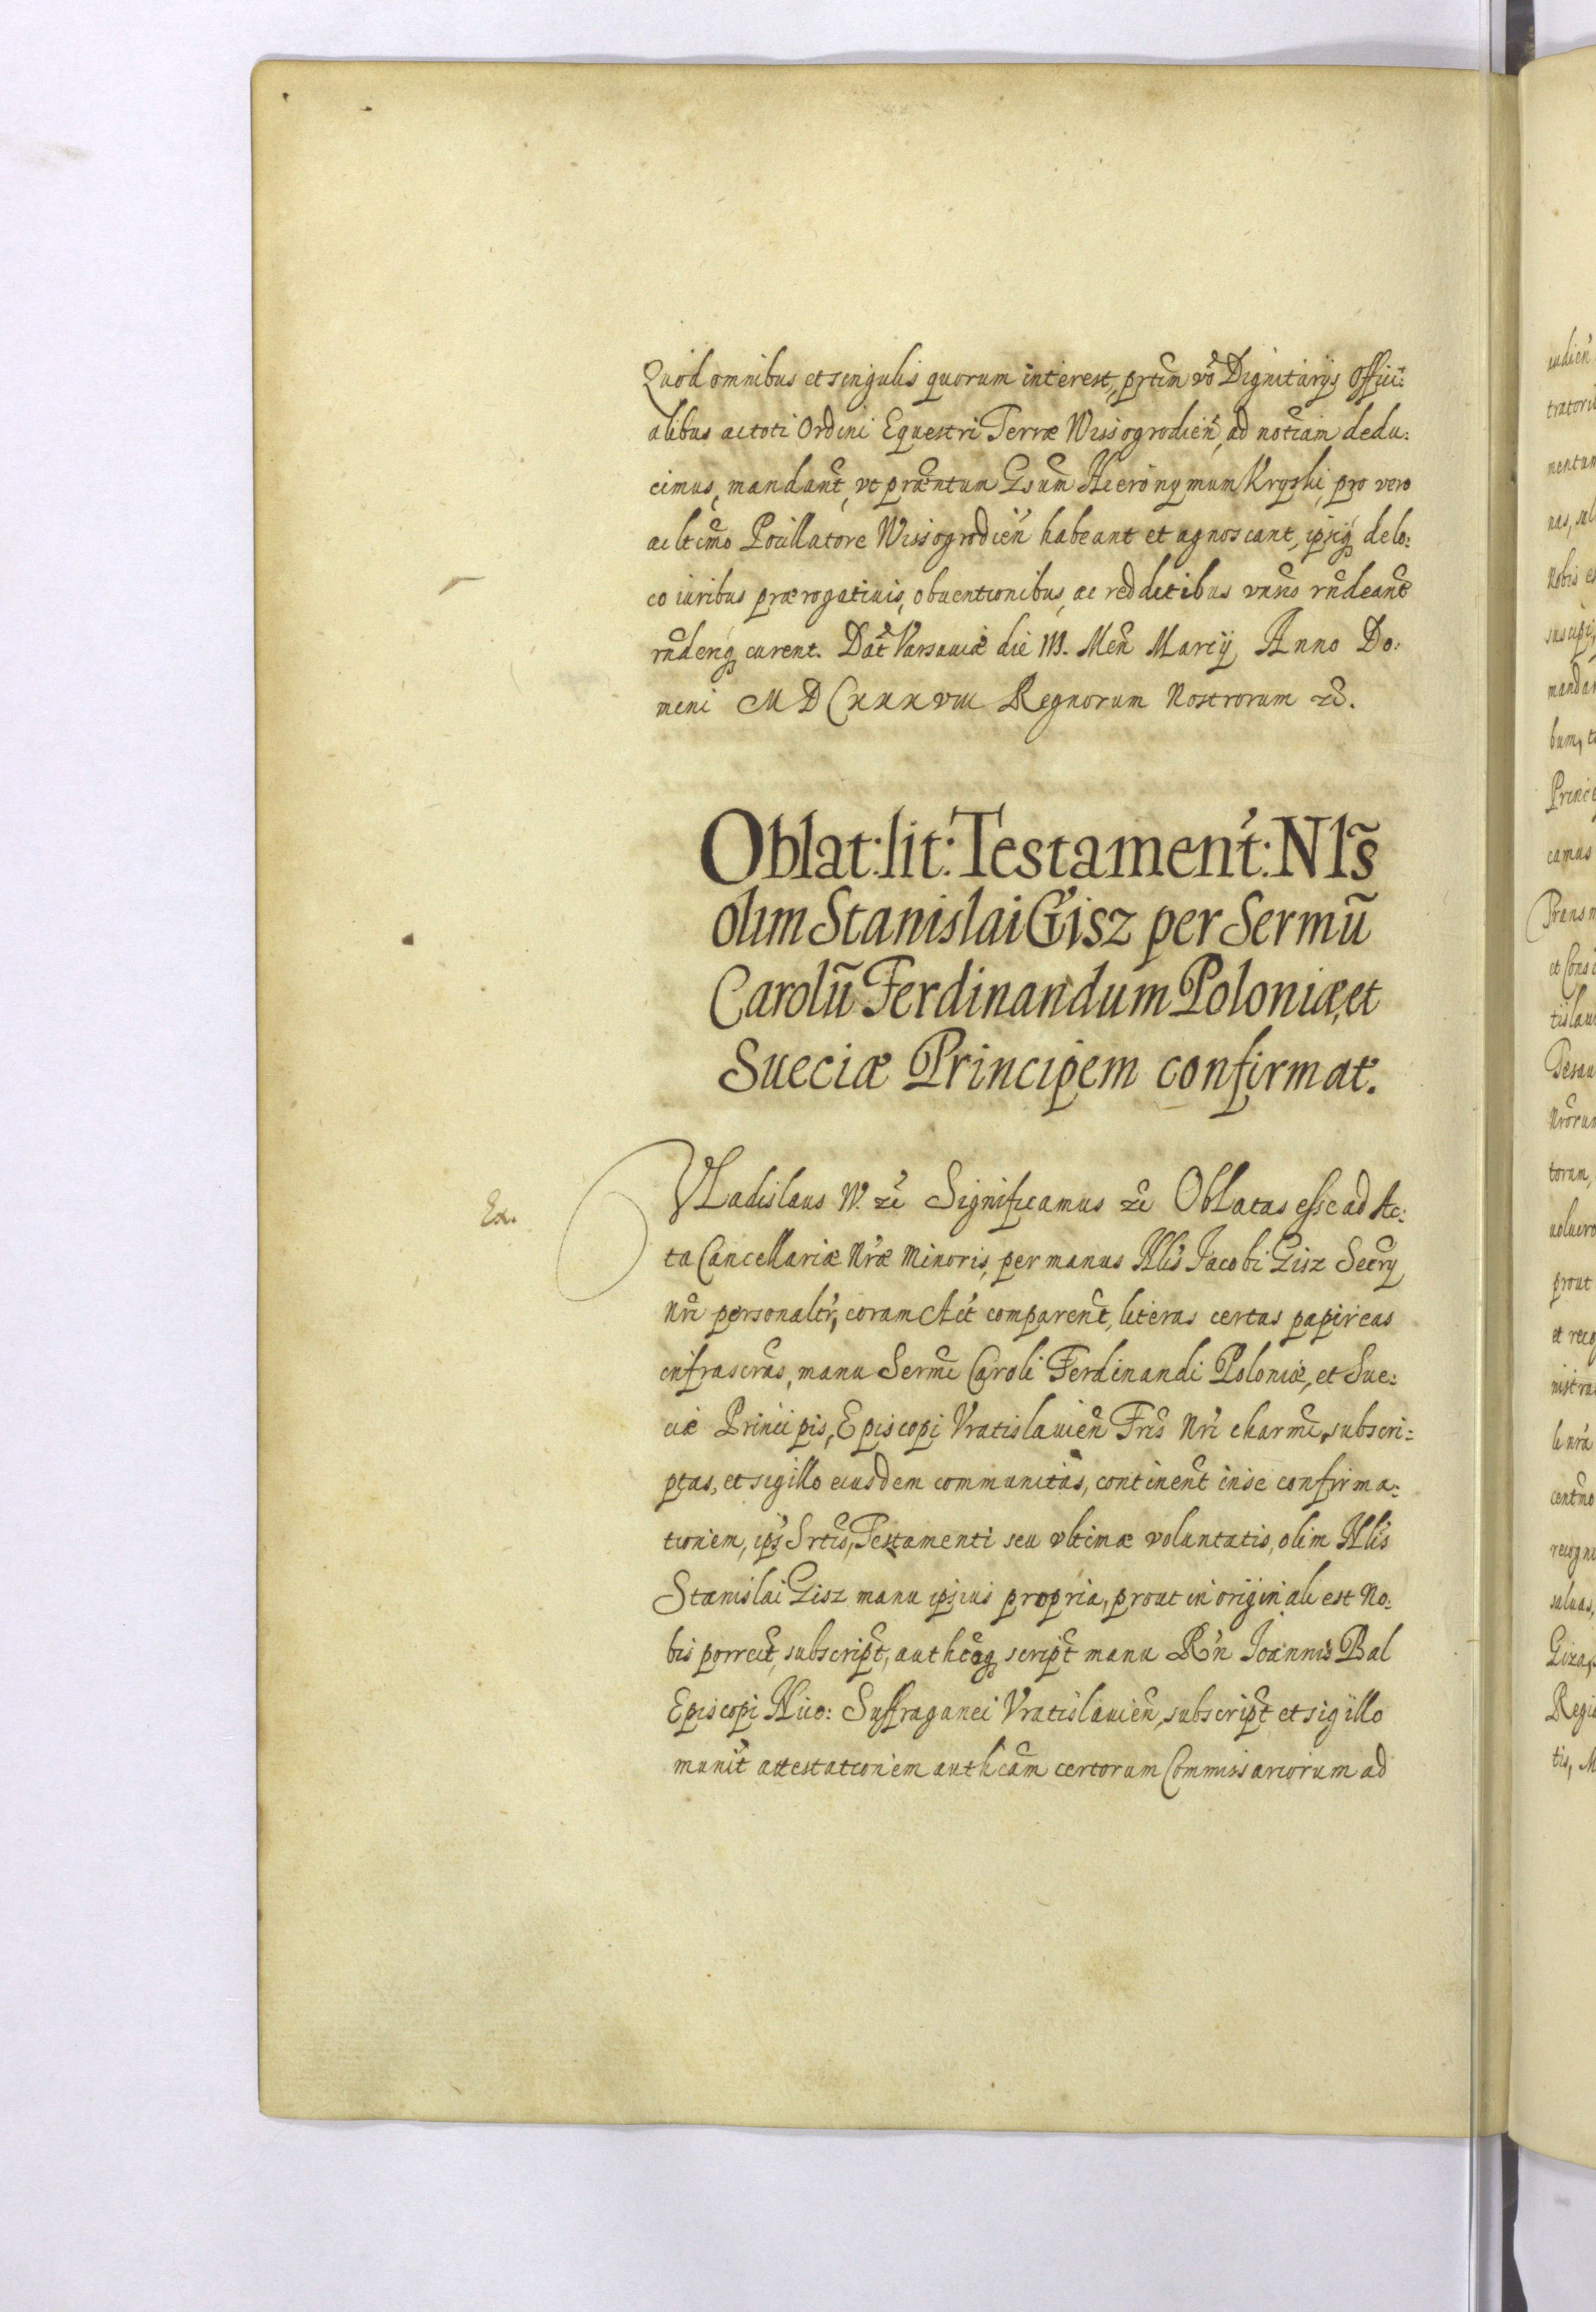 Quod omnibus et singulis quorum interest, prtim vō Dignitarys Offici:
alibus ac toti Ordini Equestri Terræ Wissogrodień, ad notiam dedu:
cimus, mandant, vt præntum Gsum Hieronymum Kryski, pro vero
ac ltimo Pocillatore Wissogrodień habeant et agnoscant, ipsiq, de lo:
co iuribus prærogatiuis, obuentionibus, ac redditibus vnīis rndeant
rnderiq, curent. Dat Varsauiæ die III. Men̄ Marcij Anno Do:
mini MDCxxxviii Regnorum Nostrorum zc.
Oblat: lit: Testament: Nls̃
olim Stanislai Gisz per Sermũ
Carolũ Ferdinandum Poloniæ, et
Sueciæ Principem confirmat.
Ex.
VLadislaus IV. zc Significamus zc Oblatas esse ad Ac:
ta Cancellariæ Nræ Minoris, per manus Nlis Jacobi Gisz Secry
Nri personaltr, coram Act comparent, literas certas papireas
infrascrās, manu Sermi Caroli Ferdinandi Poloniæ, et Sue:
ciæ Principis, Episcopi Vratislauień Fris Nri charmi, subscri:
ptas, et sigillo eiusdem communitas, continent in se confirma:
tionem, ips Srtis, Testamenti seu vltimæ voluntatis, olim Nlis
Stanislai Gisz manu ipsius propria, prout in originali est No:
bis porrect, subscript, authcaq, script manu Rn Joannis Bal
Episcopi Suffraganei Vratislauień, subscript et sigillo
munit attestationem authcam certorum Commissariorum ad